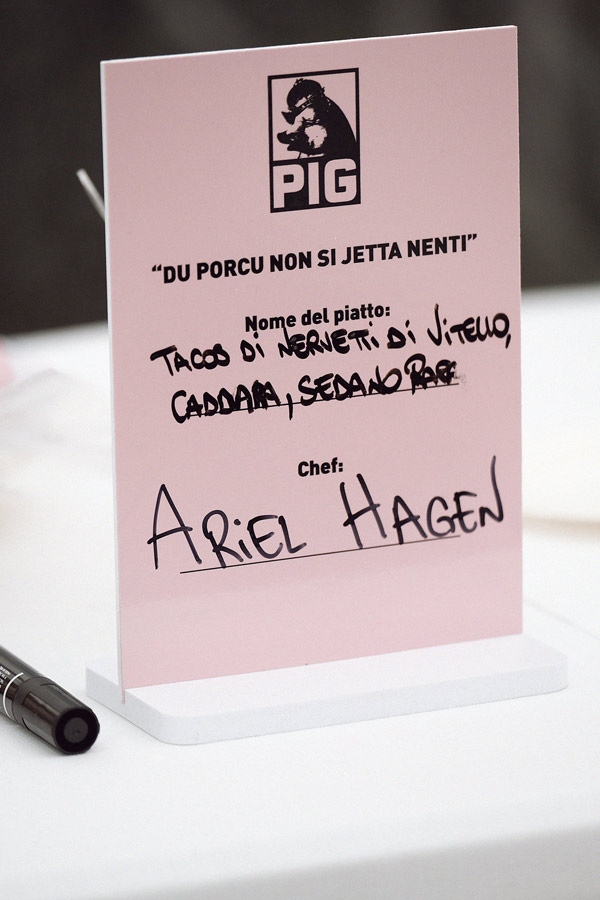 PIG
“DU PORCU NON SI JETTA NENTI”
Nome del piatto:
TACOS Di NERVETTi Di ViTELLO,
CADDARA, SEDANO
Chef:
ARiEL HAGEN